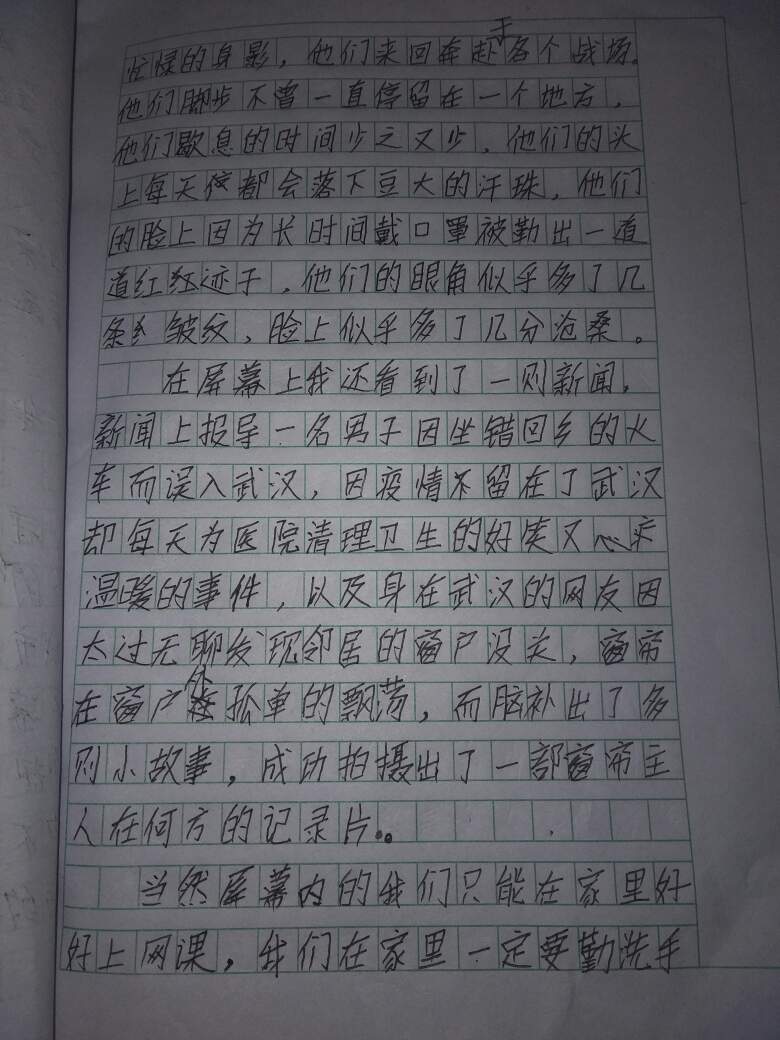 忙碌的身影，他们来回奔赴于各个战场。
他们脚步不曾一直停留在一个地方，
他们歇息的时间少之又少，他们的头
上每天都会落下豆大的汗珠，他们
的脸上因为长时间戴口罩被勤出一道
道红红迹子，他们的眼角似乎多了几
条皱纹，脸上似乎多了几分沧桑。
在屏幕上我还看到了一则新闻，
新闻上报导一名男子因坐错回乡的火
车而误入武汉，因疫情不留在了武汉
却每天为医院清理卫生的好笑又心疼
温暖的事件，以及身在武汉的网友因
太过无聊发现邻居的窗户没关，窗帘
在窗户外孤单的飘荡，而脑补出了多
则小故事，成功拍摄出了一部窗帘主
人在何方的记录片。
当然屏幕内的我们只能在家里好
好上网课，我们在家里一定要勤洗手